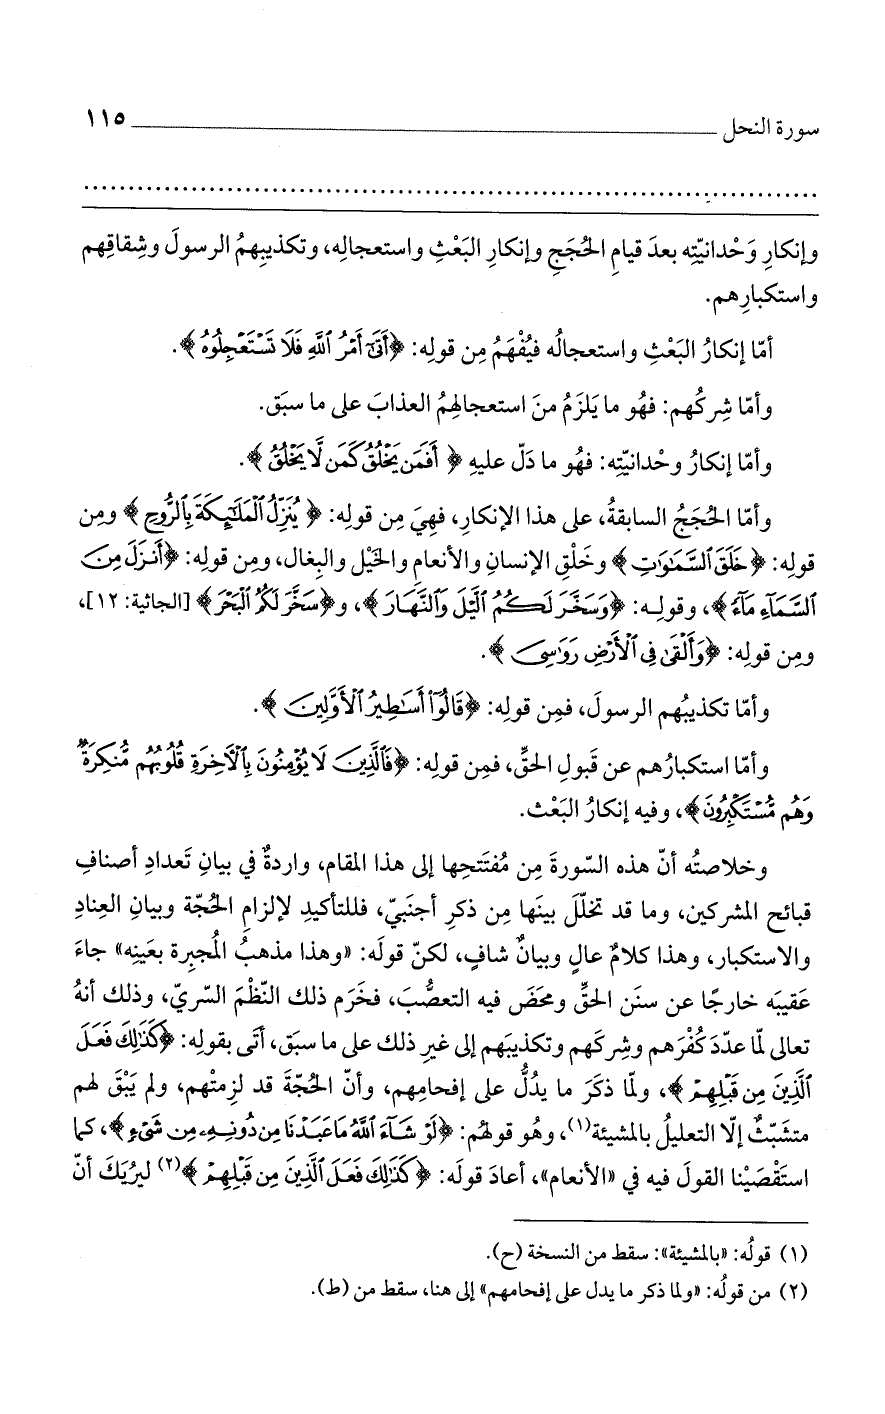 سورة النحل ١١٥
وإنكارِ وَحْدانيّتِه بعدَ قيامِ الحُجَجِ وإنكارِ البَعْثِ واستعجالِه، وتكذيبِهمُ الرسولَ وشِقاقِهم
واستكبارِهم.
أمّا إنكارُ البَعْثِ واستعجالُه فيُفْهَمُ مِن قولِه: ﴿أَتَىٰٓ أَمْرُ ٱللَّهِ فَلَا تَسْتَعْجِلُوهُ﴾.
وأمّا شِركُهم: فهُو ما يَلزَمُ منَ استعجالهِمُ العذابَ على ما سبَق.
وأمّا إنكارُ وحْدانيّتِه: فهُو ما دَلّ عليهِ ﴿أَفَمَن يَخْلُقُ كَمَن لَّا يَخْلُقُ﴾.
وأمّا الحُجَجُ السابقةُ، على هذا الإنكارِ، فهِيَ مِن قولِه: ﴿يُنَزِّلُ ٱلْمَلَٰٓئِكَةَ بِٱلرُّوحِ﴾ ومِن
قولِه: ﴿خَلَقَ ٱلسَّمَٰوَٰتِ﴾ وخَلْقِ الإنسانِ والأنعامِ والخَيْلِ والبِغال، ومِن قولِه: ﴿أَنزَلَ مِنَ
ٱلسَّمَآءِ مَآءً﴾، وقولِه: ﴿وَسَخَّرَ لَكُمُ ٱلَّيْلَ وَٱلنَّهَارَ﴾، و﴿سَخَّرَ لَكُمُ ٱلْبَحْرَ﴾ [الجاثية: ١٢]،
ومِن قولِه: ﴿وَأَلْقَىٰ فِى ٱلْأَرْضِ رَوَٰسِىَ﴾.
وأمّا تكذيبُهم الرسولَ، فمِن قولِه: ﴿قَالُوٓا۟ أَسَٰطِيرُ ٱلْأَوَّلِينَ﴾.
وأمّا استكبارُهم عن قَبولِ الحقِّ، فمِن قولِه: ﴿فَٱلَّذِينَ لَا يُؤْمِنُونَ بِٱلْأَخِرَةِ قُلُوبُهُم مُّنكِرَةٌ
وَهُم مُّسْتَكْبِرُونَ﴾، وفيه إنكارُ البَعْث.
وخلاصتُه أنّ هذه السّورةَ مِن مُفتَتحِها إلى هذا المقام، واردةٌ في بيانِ تَعدادِ أصنافِ
قبائحِ المشركين، وما قد تخلّلَ بينَها مِن ذكرِ أجنَبيّ، فللتأكيدِ لإلزامِ الحُجّة وبيانِ العِنادِ
والاستكبار، وهذا كلامٌ عالٍ وبيانٌ شافٍ، لكنّ قولَه: «وهذا مذهبُ المُجبِرة بعَينِه» جاءَ
عَقيبَه خارجًا عن سنَن الحقِّ ومحَضَ فيه التعصُّبَ، فخَرَم ذلك النّظْمَ السريّ، وذلك أنهُ
تعالى لمّا عدّدَ كُفْرَهم وشِركَهم وتكذيبَهم إلى غيرِ ذلك على ما سبَق، أتَى بقولِه: ﴿كَذَٰلِكَ فَعَلَ
ٱلَّذِينَ مِن قَبْلِهِمْ﴾، ولمّا ذكَرَ ما يدُلُّ على إفحامِهم، وأنّ الحُجّةَ قد لزِمتْهم، ولم يَبْقَ لهم
متشبَّثٌ إلّا التعليلُ بالمشيئة(١)، وهُو قولهُم: ﴿لَوْ شَآءَ ٱللَّهُ مَا عَبَدْنَا مِن دُونِهِۦ مِن شَىْءٍ﴾، كما
استَقْصَيْنا القولَ فيه في «الأنعام»، أعادَ قولَه: ﴿كَذَٰلِكَ فَعَلَ ٱلَّذِينَ مِن قَبْلِهِمْ﴾(٢) ليرُيَكَ أنّ
(١) قولُه: «بالمشيئة»: سقط من النسخة (ح).
(٢) من قولُه: «ولما ذكر ما يدل على إفحامهم» إلى هنا، سقط من (ط).